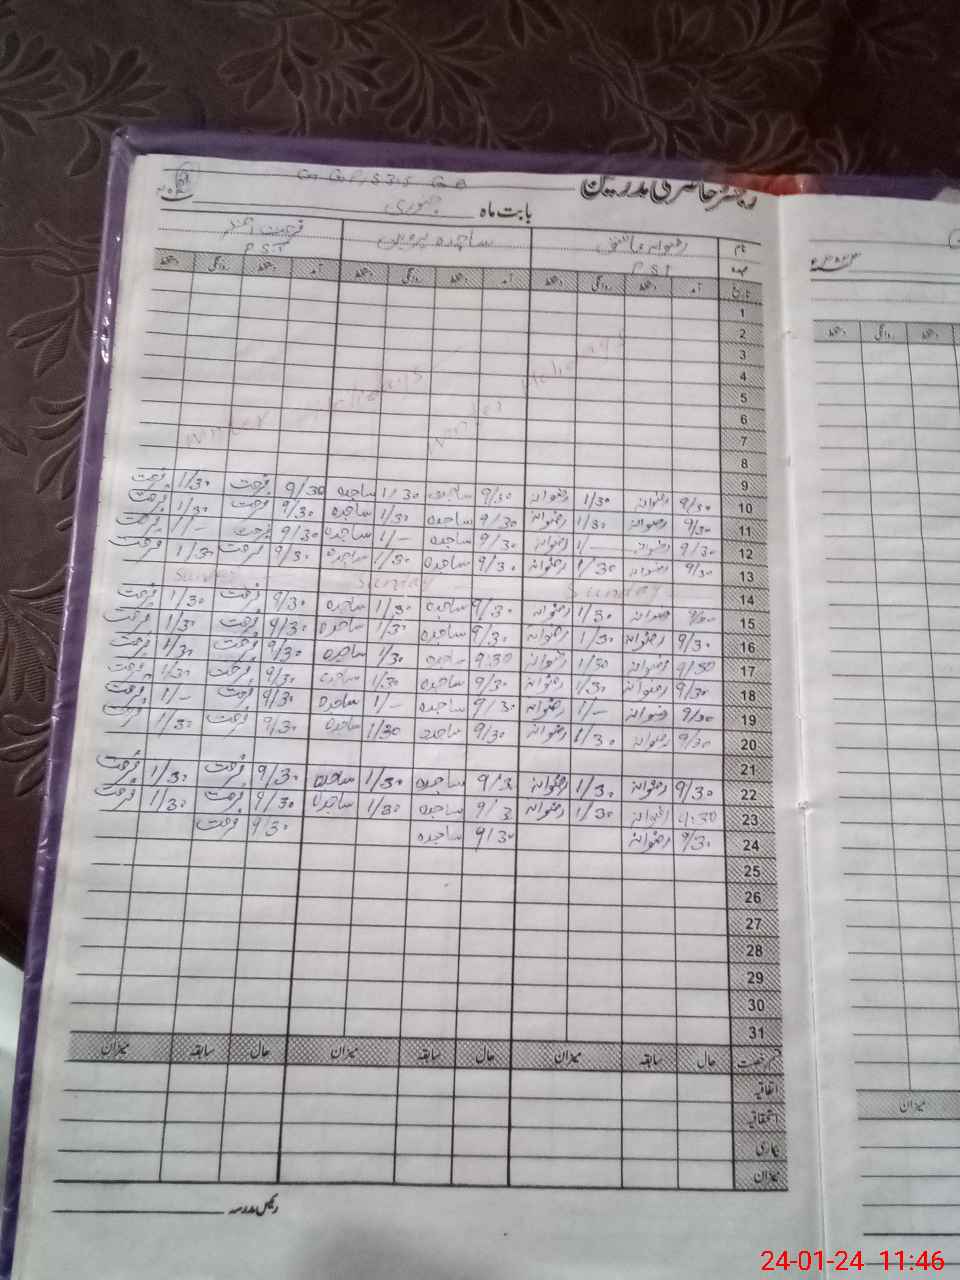 رجسٹر حاضری مدرسین
بابت ماہ جنوری
نام رضوانہ ساجدہ پروین فرحت
عہدہ PST PST
تاریخ آمد دستخط روانگی دستخط آمد دستخط روانگی دستخط آمد دستخط روانگی دستخط
1
2
3
4
5
6
7
8
Winter Holidays Winter Holidays
9
10 9/30 رضوانہ 1/30 رضوانہ 9/30 ساجدہ 1/30 ساجدہ 9/30 فرحت 1/30 فرحت
11 9/30 رضوانہ 1/30 رضوانہ 9/30 ساجدہ 1/30 ساجدہ 9/30 فرحت 1/30 فرحت
12 9/30 رضوانہ 1/- رضوانہ 9/30 ساجدہ 1/- ساجدہ 9/30 فرحت 1/- فرحت
13 9/30 رضوانہ 1/30 رضوانہ 9/30 ساجدہ 1/30 ساجدہ 9/30 فرحت 1/30 فرحت
14 Sunday Sunday Sunday
15 رضوانہ 1/30 رضوانہ 9/30 ساجدہ 1/30 ساجدہ 9/30 فرحت 1/30 فرحت
16 9/30 رضوانہ 1/30 رضوانہ 9/30 ساجدہ 1/30 ساجدہ 9/30 فرحت 1/30 فرحت
17 9/30 رضوانہ 1/30 رضوانہ 9/30 ساجدہ 1/30 ساجدہ 9/30 فرحت 1/30 فرحت
18 9/30 رضوانہ 1/30 رضوانہ 9/30 ساجدہ 1/30 ساجدہ 9/30 فرحت 1/30 فرحت
19 9/30 رضوانہ 1/- رضوانہ 9/30 ساجدہ 1/- ساجدہ 9/30 فرحت 1/- فرحت
20 9/30 رضوانہ 1/30 رضوانہ 9/30 ساجدہ 1/30 ساجدہ 9/30 فرحت 1/30 فرحت
21
22 9/30 رضوانہ 1/30 رضوانہ 9/3 ساجدہ 1/30 ساجدہ 9/30 فرحت 1/30 فرحت
23 9/30 رضوانہ 1/30 رضوانہ 9/3 ساجدہ 1/30 ساجدہ 9/30 فرحت 1/30 فرحت
24 9/30 رضوانہ 9/30 ساجدہ 9/30 فرحت
25
26
27
28
29
30
31
رخصت حال سابقہ میزان حال سابقہ میزان حال سابقہ میزان
اتفاقیہ
استحقاقیہ
بیماری
میزان
رئیس مدرسہ
دستخط روانگی دستخط
میزان
24-01-24 11:46